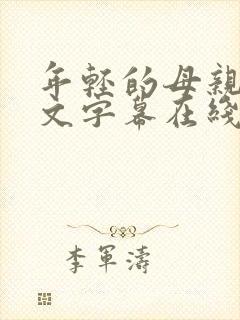 年輕的母親
文字幕在綫
李軍濤